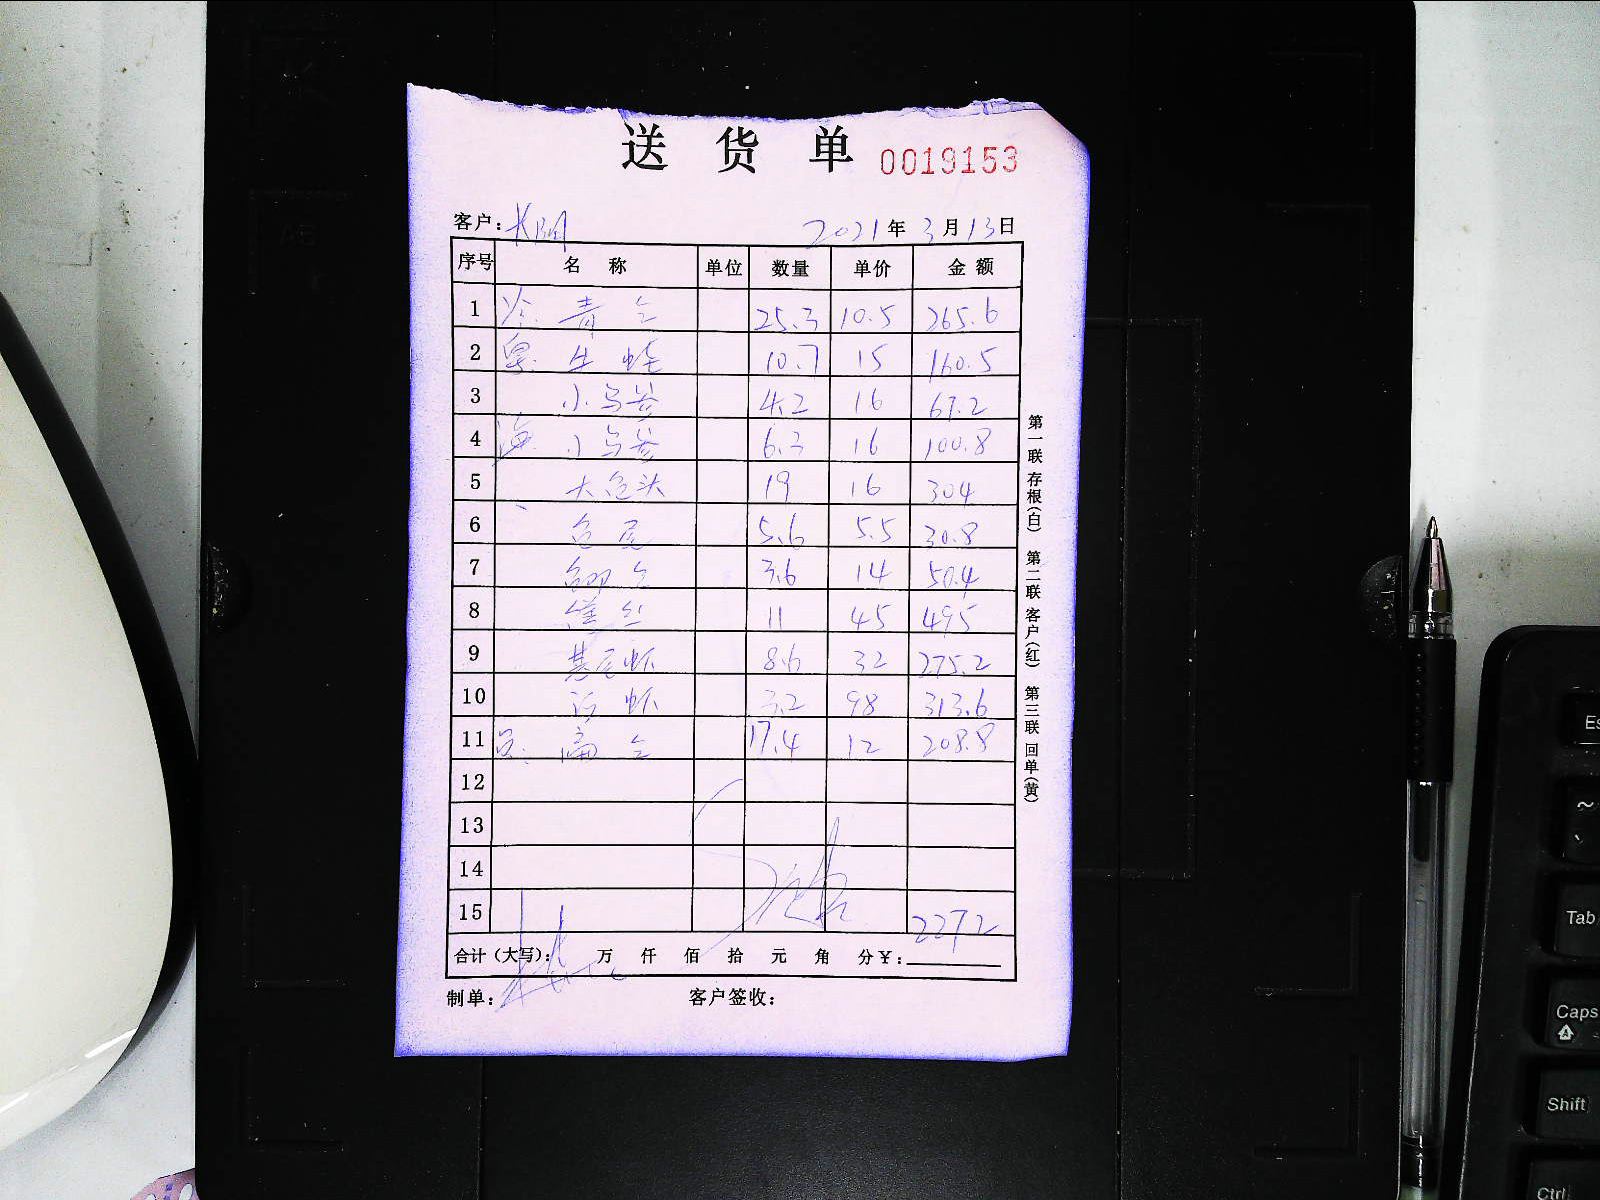 送 货 单 0019153
客户： 2021年 3月13日
序号 名 称 单位 数量 单价 金 额
1 青 25.3 10.5 265.6
2 牛 蛙 10.7 15 160.5
3 小乌参 4.2 16 67.2
4 小乌参 6.3 16 100.8
5 大 头 19 16 304
6 尾 5.6 5.5 30.8
7 3.6 14 50.4
8 11 45 495
9 基尾虾 8.6 32 275.2
10 虾 3.2 98 313.6
11 17.4 12 208.8
12
13
14
15 2272
合计（大写）： 万 仟 佰 拾 元 角 分￥：
制单： 客户签收：
第一联 存根(白) 第二联 客户(红) 第三联 回单(黄)
Es
~
Tab
Caps
Shift
Ctrl